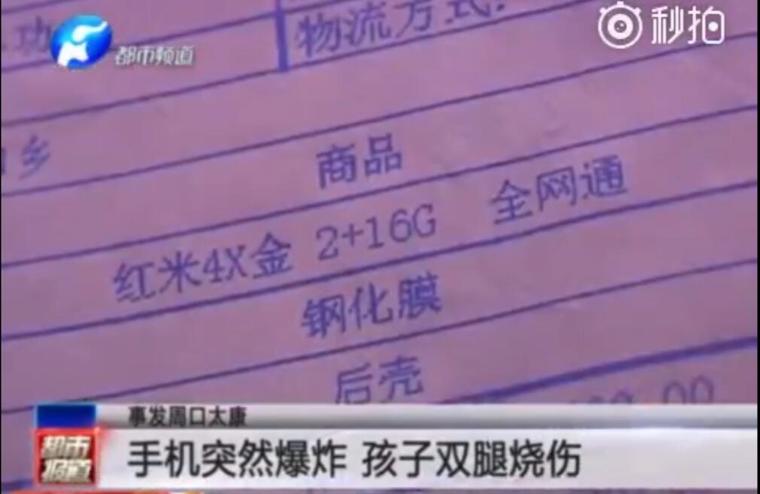 功
物流方式:
都市频道
秒拍
乡
商品
红米4X金 2+16G 全网通
钢化膜
后壳
.00
事发周口太康
都市报道
手机突然爆炸 孩子双腿烧伤